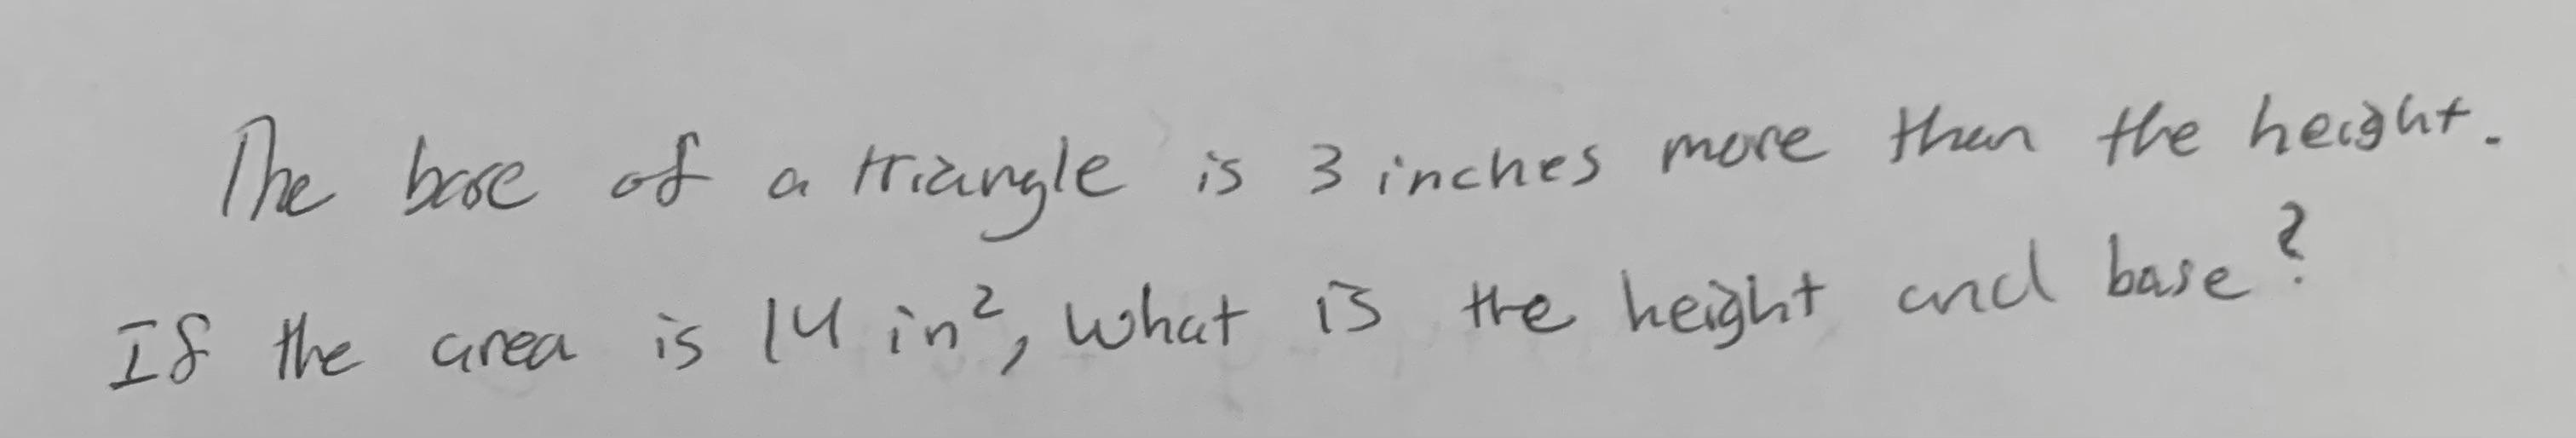 The base of a triangle is 3 inches more than the height.
If the area is 14 in², what is the height and base?